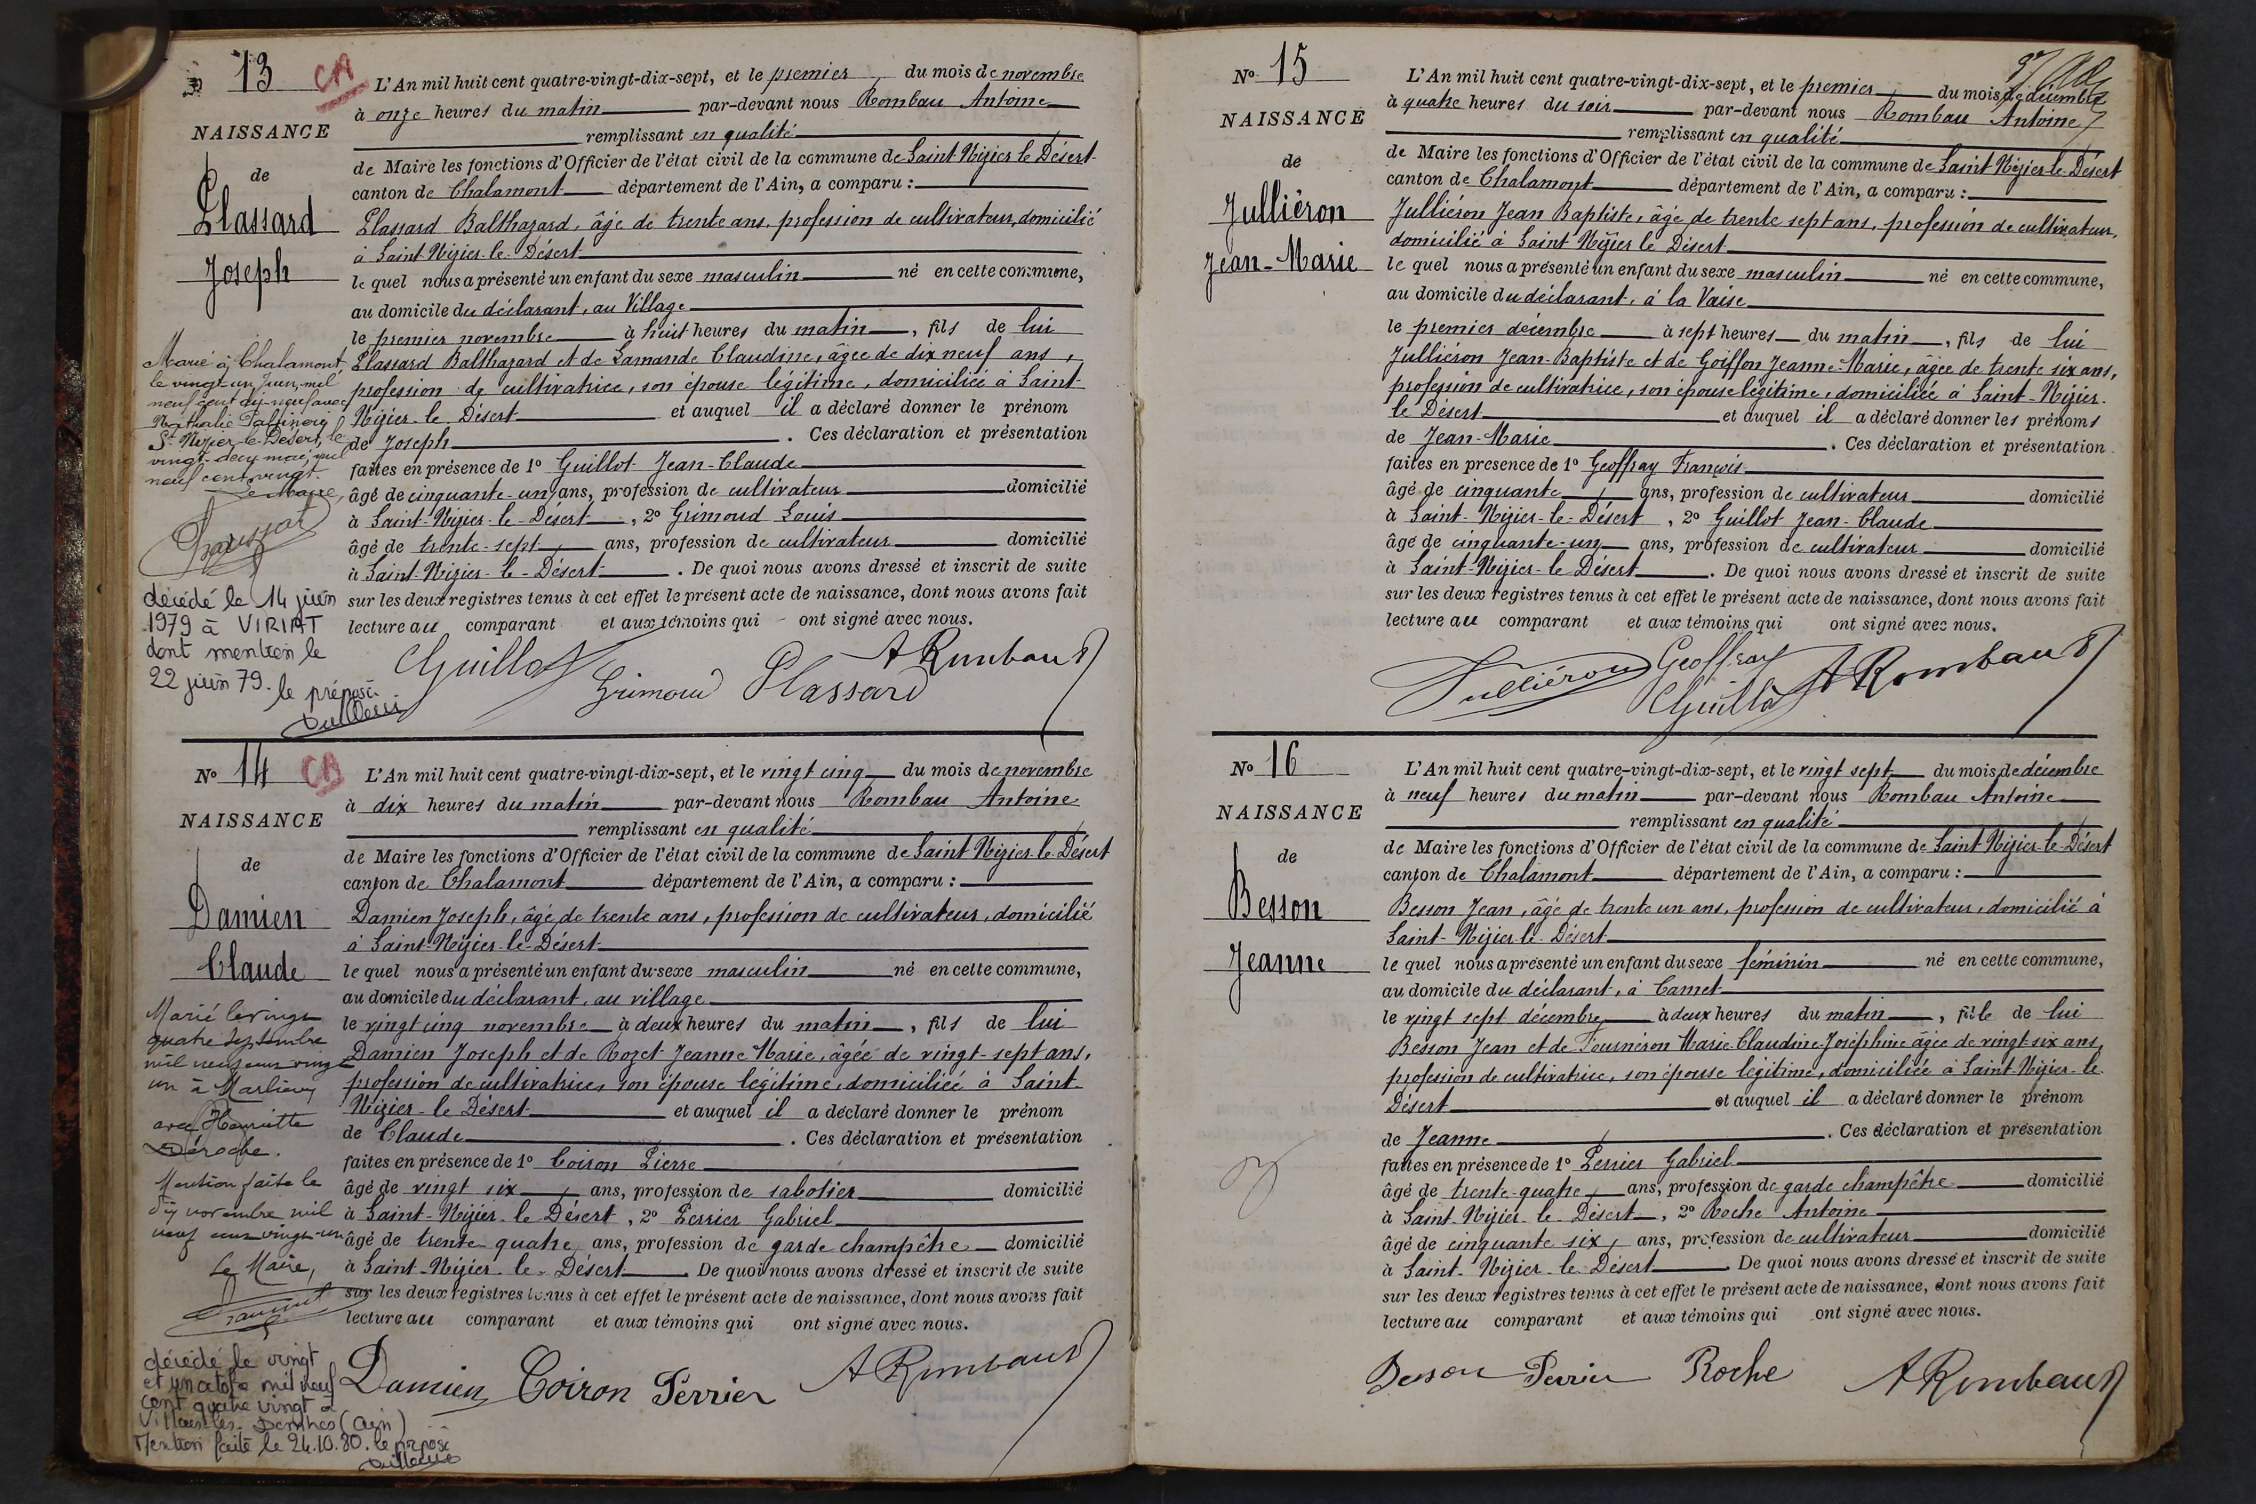 13 CA
NAISSANCE
de
Plassard
Joseph
L'An mil huit cent quatre-vingt-dix-sept, et le premier du mois de novembre
à onze heures du matin par-devant nous Rombau Antoine
remplissant en qualité
de Maire les fonctions d'Officier de l'état civil de la commune de Saint Nizier le Désert
canton de Chalamont département de l'Ain, a comparu :
Plassard Balthazard, âgé de trente ans, profession de cultivateur, domicilié
à Saint Nizier-le-Désert
le quel nous a présenté un enfant du sexe masculin né en cette commune,
au domicile du déclarant, au Village
le premier novembre à huit heures du matin, fils de lui
Plassard Balthazard et de Lamande Claudine, âgée de dix neuf ans,
profession de cultivatrice, son épouse légitime, domiciliée à Saint-
Nizier-le Désert et auquel il a déclaré donner le prénom
de Joseph. Ces déclaration et présentation
faites en présence de 1º Guillot Jean-Claude
âgé de cinquante-un ans, profession de cultivateur domicilié
à Saint-Nizier-le-Désert, 2º Grimoud Louis
âgé de trente-sept ans, profession de cultivateur domicilié
à Saint-Nizier-le-Désert. De quoi nous avons dressé et inscrit de suite
sur les deux registres tenus à cet effet le présent acte de naissance, dont nous avons fait
lecture au comparant et aux témoins qui ont signé avec nous.
CGuillot Grimoud Plassard ARombaud
Marié à Chalamont,
le vingt un Juin mil
neuf cent dix-neuf avec
Nathalie
St Nizier-le-Désert, le
vingt-deux mai, mil
neuf cent vingt.
Le Maire,
décédé le 14 juin
1979 à VIRIAT
dont mention le
22 juin 79. le préposé
No 14 CB
NAISSANCE
de
Damien
Claude
L'An mil huit cent quatre-vingt-dix-sept, et le vingt cinq du mois de novembre
à dix heures du matin par-devant nous Rombau Antoine
remplissant en qualité
de Maire les fonctions d'Officier de l'état civil de la commune de Saint Nizier-le-Désert
canton de Chalamont département de l'Ain, a comparu :
Damien Joseph, âgé de trente ans, profession de cultivateur, domicilié
à Saint-Nizier-le-Désert
le quel nous a présenté un enfant du sexe masculin né en cette commune,
au domicile du déclarant, au village
le vingt cinq novembre à deux heures du matin, fils de lui
Damien Joseph et de Rozet Jeanne Marie, âgée de vingt-sept ans,
profession de cultivatrice, son épouse légitime, domiciliée à Saint
Nizier-le Désert et auquel il a déclaré donner le prénom
de Claude. Ces déclaration et présentation
faites en présence de 1º Coiron Pierre
âgé de vingt six ans, profession de sabotier domicilié
à Saint-Nizier-le Désert, 2º Perrier Gabriel
âgé de trente quatre ans, profession de garde champêtre domicilié
à Saint-Nizier-le-Désert. De quoi nous avons dressé et inscrit de suite
sur les deux registres tenus à cet effet le présent acte de naissance, dont nous avons fait
lecture au comparant et aux témoins qui ont signé avec nous.
Damien Coiron Perrier ARombaud
Marié le vingt
quatre Septembre
mil neuf cent vingt
un à Marlieux
avec Henriette
Déroche.
Mention faite le
dix novembre mil
neuf cent vingt-un
Le Maire,
décédé le vingt
et un octobre mil neuf
cent quatre vingt à
Villars les Dombes (Ain)
Mention faite le 24.10.80. le préposé
No 15
NAISSANCE
de
Julliéron
Jean-Marie
L'An mil huit cent quatre-vingt-dix-sept, et le premier du mois de décembre
à quatre heures du soir par-devant nous Rombau Antoine
remplissant en qualité
de Maire les fonctions d'Officier de l'état civil de la commune de Saint Nizier-le-Désert
canton de Chalamont département de l'Ain, a comparu :
Julliéron Jean Baptiste, âgé de trente sept ans, profession de cultivateur,
domicilié à Saint Nizier le Désert
le quel nous a présenté un enfant du sexe masculin né en cette commune,
au domicile du déclarant, à la Vaise
le premier décembre à sept heures du matin, fils de lui
Julliéron Jean-Baptiste et de Goiffon Jeanne-Marie, âgée de trente six ans,
profession de cultivatrice, son épouse légitime, domiciliée à Saint-Nizier-
le Désert et auquel il a déclaré donner les prénoms
de Jean-Marie. Ces déclaration et présentation
faites en présence de 1º Geoffray François
âgé de cinquante ans, profession de cultivateur domicilié
à Saint-Nizier-le-Désert, 2º Guillot Jean-Claude
âgé de cinquante-un ans, profession de cultivateur domicilié
à Saint-Nizier-le Désert. De quoi nous avons dressé et inscrit de suite
sur les deux registres tenus à cet effet le présent acte de naissance, dont nous avons fait
lecture au comparant et aux témoins qui ont signé avec nous.
Julliéron Geoffray CGuillot ARombaud
No 16
NAISSANCE
de
Besson
Jeanne
L'An mil huit cent quatre-vingt-dix-sept, et le vingt sept du mois de décembre
à neuf heures du matin par-devant nous Rombau Antoine
remplissant en qualité
de Maire les fonctions d'Officier de l'état civil de la commune de Saint Nizier-le-Désert
canton de Chalamont département de l'Ain, a comparu :
Besson Jean, âgé de trente un ans, profession de cultivateur, domicilié à
Saint-Nizier-le-Désert
le quel nous a présenté un enfant du sexe féminin né en cette commune,
au domicile du déclarant, à Camet
le vingt sept décembre à deux heures du matin, fille de lui
Besson Jean et de Fournéron Marie-Claudine-Joséphine âgée de vingt-six ans,
profession de cultivatrice, son épouse légitime, domiciliée à Saint Nizier-le-
Désert et auquel il a déclaré donner le prénom
de Jeanne. Ces déclaration et présentation
faites en présence de 1º Perrier Gabriel
âgé de trente-quatre ans, profession de garde champêtre domicilié
à Saint-Nizier-le-Désert, 2º Roche Antoine
âgé de cinquante six ans, profession de cultivateur domicilié
à Saint-Nizier-le-Désert. De quoi nous avons dressé et inscrit de suite
sur les deux registres tenus à cet effet le présent acte de naissance, dont nous avons fait
lecture au comparant et aux témoins qui ont signé avec nous.
Besson Perrier Roche ARombaud